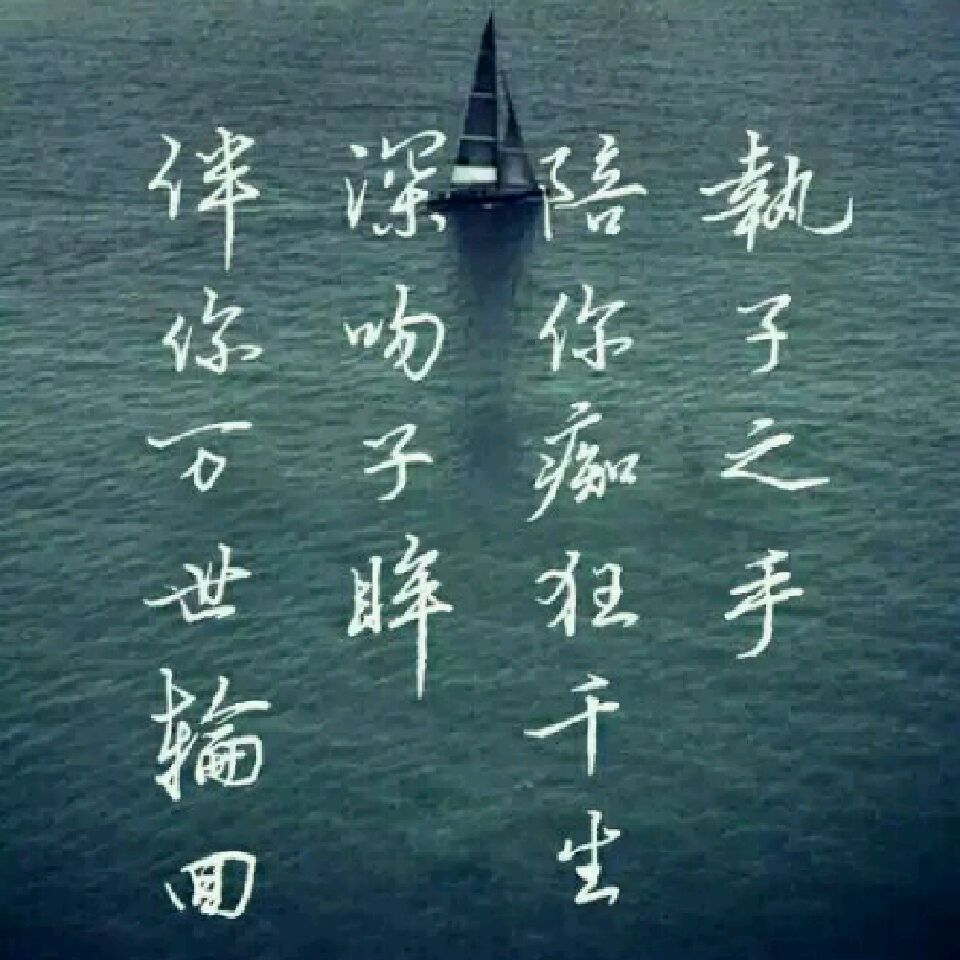 執子之手
陪你痴狂千生
深吻子眸
伴你万世輪回